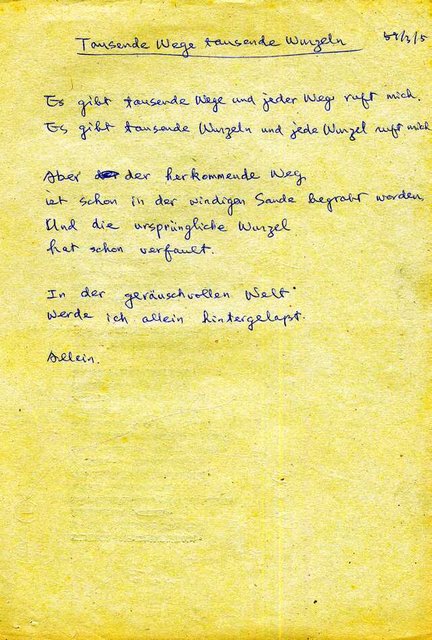 Tausende Wege tausende Wurzeln
Es gibt tausende Wege und jeder Weg ruft mich.
Es gibt tausende Wurzeln und jede Wurzel ruft mich
Aber der herkommende Weg
ist schon in der windigen Sande begrabt worden,
Und die ursprüngliche Wurzel
hat schon verfault.
In der geräuschvollen Welt
werde ich allein hintergelaßt.
Allein.